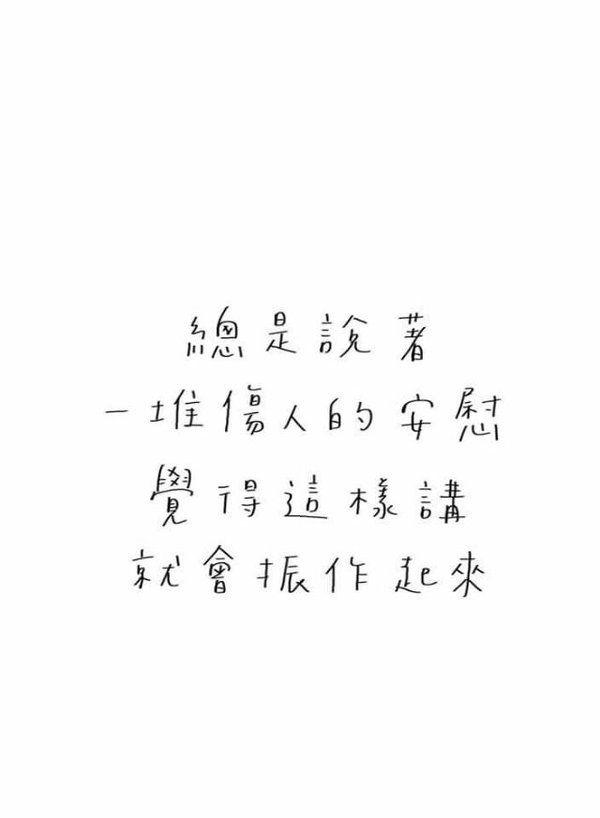 總是說著
一堆傷人的安慰
覺得這樣講
就會振作起來